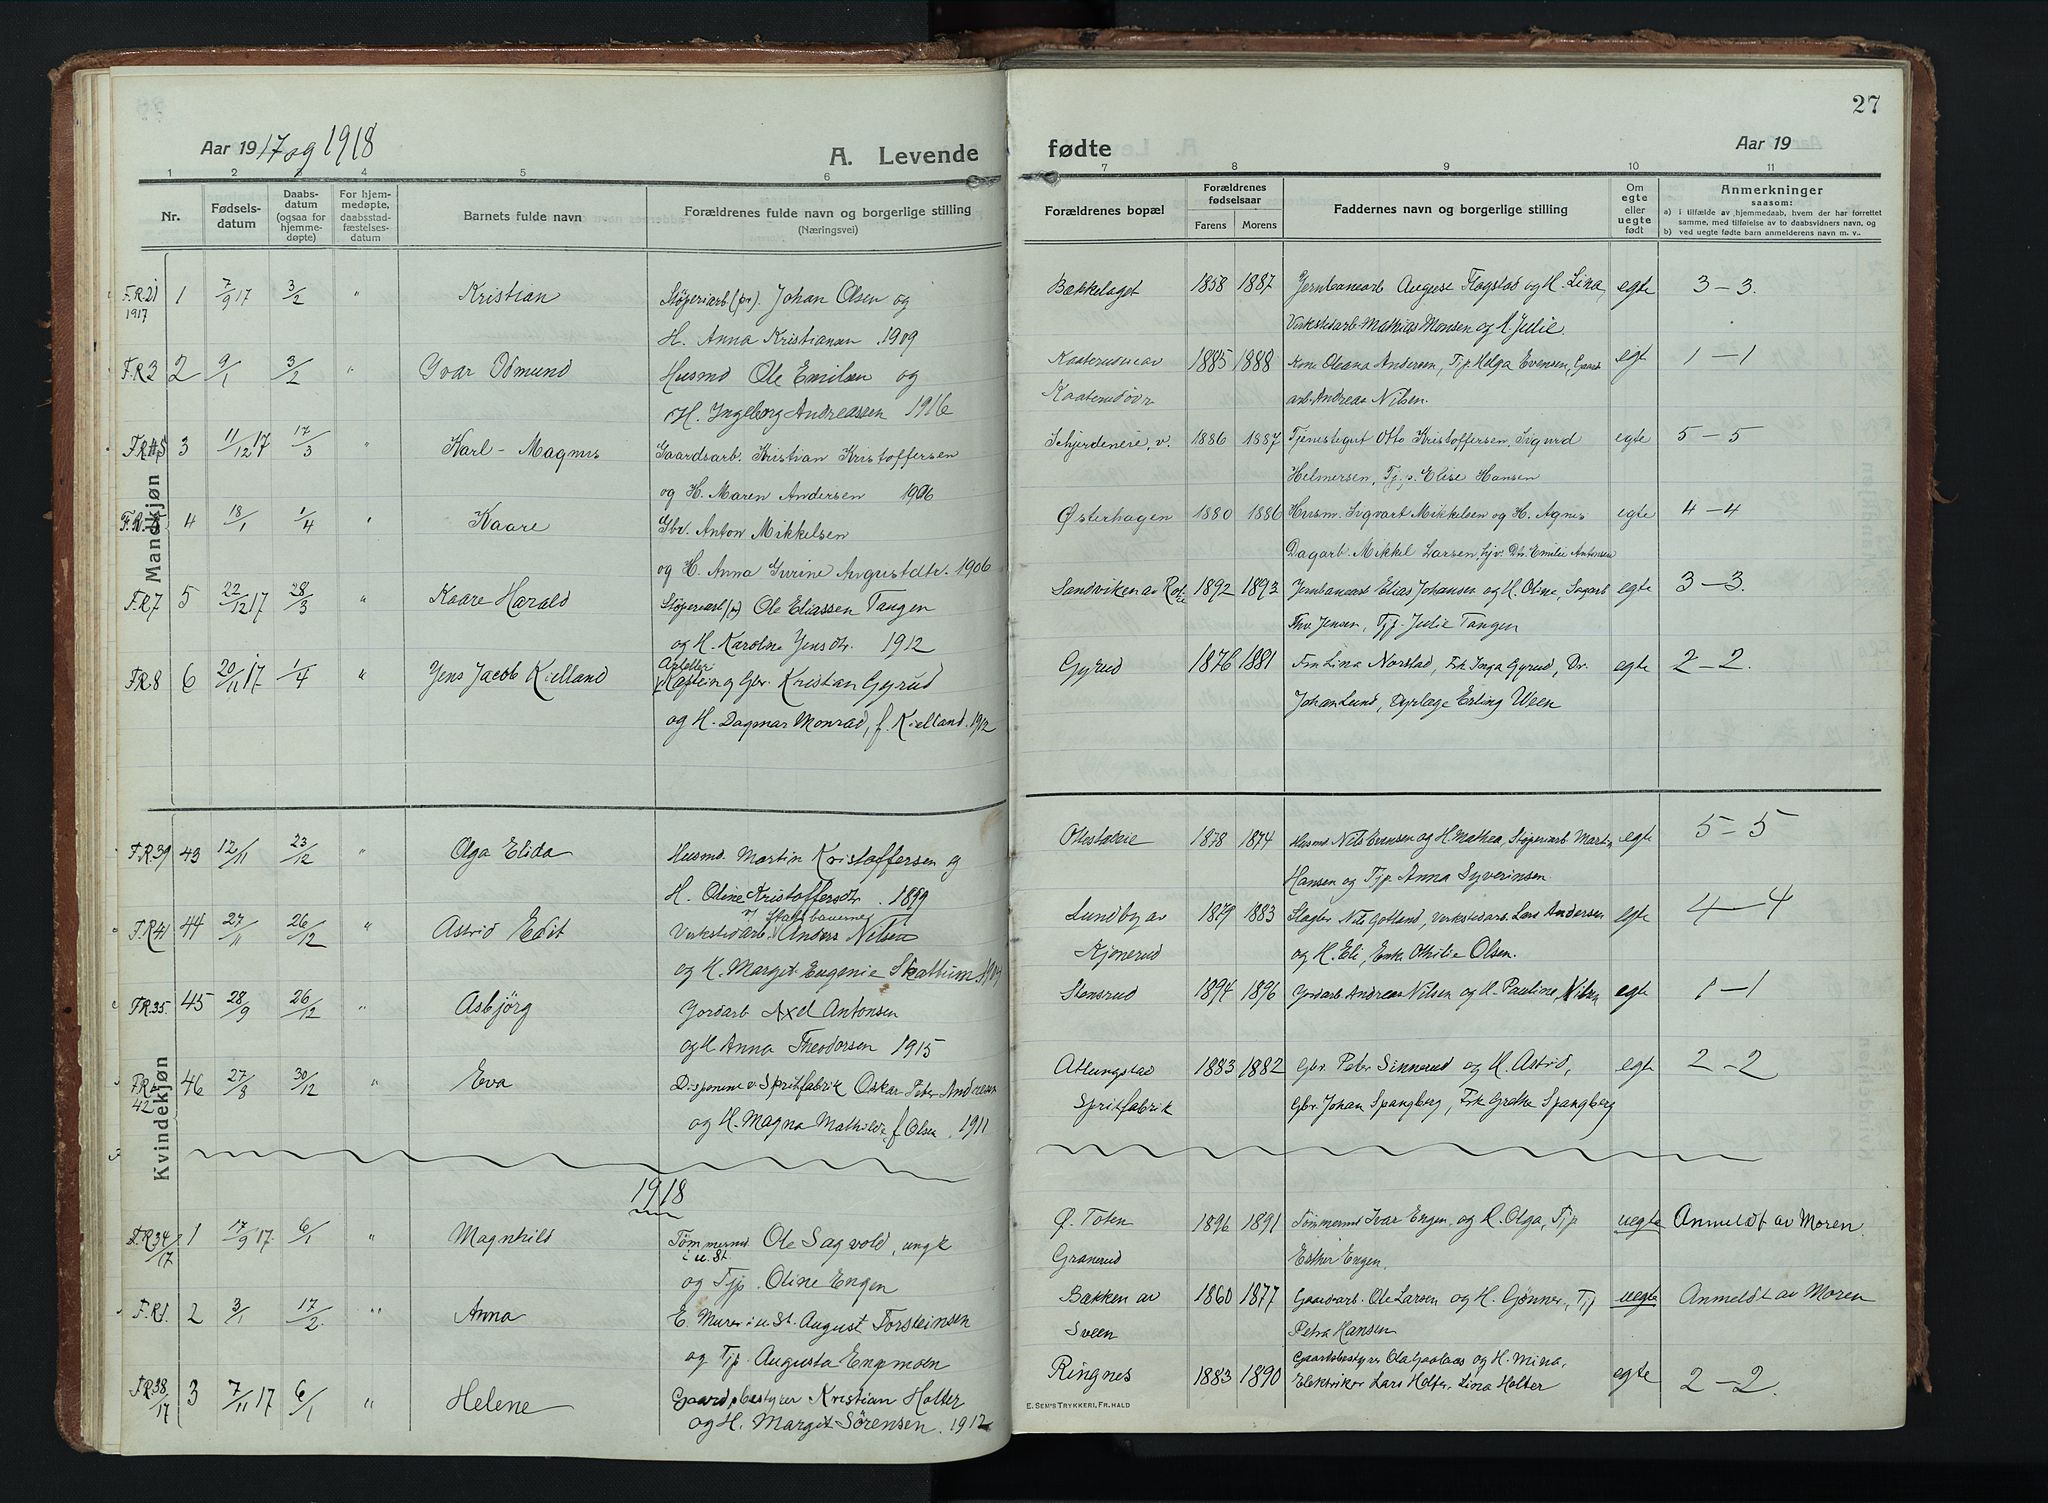 27
Aar 1917 og 1918
A. Levende
fødte
Aar 19
1 2 3 4 5 6 7 8 9 10 11
Nr.
Fødsels-
datum
Daabs-
datum
(ogsaa for
hjemme-
døpte)
For hjem-
medøpte,
daabsstad-
fæstelses-
datum
Barnets fulde navn
Forældrenes fulde navn og borgerlige stilling
(Næringsvei)
Forældrenes bopæl
Forældrenes
fødselsaar
Farens Morens
Faddernes navn og borgerlige stilling
Om
egte
eller
uegte
født
Anmerkninger
saasom:
a) i tilfælde av hjemmedaab, hvem der har forrettet
samme, med tilføielse av to daabsvidners navn, og
b) ved uegte fødte barn anmelderens navn m. v..
Mandkjøn
F.R.21 1 7/9 17 3/2 " Kristian Støperiarb (pr). Johan Olsen og Bækkelaget 1858 1887 Jernbanearb August Flagstad og H. Lina, egte 3 – 3.
1917 H. Anna Kristiansen 1909 Virkstedarb. Mathias Monsen og H. Julie.
F.R 3 2 9/1 3/2 " Ivar Odmund Husmd Ole Emilsen og 1885 1888 Kone Oleana Andersen, Tjp. Helga Evensen, Gaards egte 1 – 1
H. Ingeborg Andreassen 1916 arb. Andreas Nilsen.
F.R 45 3 11/12 17 17/3 " Karl - Magnus Gaardsarb. Kristian Kristoffersen Schjerdeneie, v. 1886 1887 Tjenestegut Otto Kristoffersen, Sigurd egte 5 – 5
og H. Maren Andersen 1906 Helmersen, Tjp. Elise Hansen
F.R. 5 4 18/1 1/4 " Kaare Gbr. Anton Mikkelsen Østerhagen 1880 1886 Husm. Sigvart Mikkelsen og H. Agnes egte 4 – 4
og H. Anna Gurine Augustdtr. 1906 Dagarb. Mikkel Larsen, hjv. Dtr. Emilie Antonsen
F.R 7 5 22/12 17 28/3 " Kaare Harald Støperiarb (pr) Ole Eliassen Tangen Sandviken av 1892 1893 Jernbanearb Elias Johansen og H. Oline, Sagarb egte 3 – 3.
og H. Karoline Jensdtr. 1912 Thv. Jensen, Tjp. Julie Tangen
F.R 8 6 20/11 17 1/4 " Jens Jacob Kielland Kaptein og Gbr. Kristian Gyrud Gyrud 1876 1881 Fru Lina Norstad, Frk Inga Gyrud, Dr. egte 2 – 2.
og H. Dagmar Monrad, f. Kielland. 1912 Johan Lund, Dyrlæge Erling Ween
Kvindekjøn
F.R 39 43 12/11 23/12 " Olga Elida Husmd. Martin Kristoffersen og 1878 1874 Husmd Nils Evensen og H. Mathea, Støperiarb Martin egte 5 – 5
H. Oline Kristoffersdtr. 1899 Hansen og Tjp. Anna Syverinsen.
F.R 41 44 27/11 26/12 " Astrid Edit Virkstedarb. v/ Statsbanerne Anders Nilsen Lundby av 1879 1883 Slagter Nils Gotland, Virkstedarb. Lars Andersen egte 4 – 4
og H. Margit Eugenie Skattum. 1904 Kjonerud og H. Eli, Enke Othilie Olsen.
F.R 35. 45 28/9 26/12 " Asbjörg Jordarb Axel Antonsen Stensrud 1894 1896 Jordarb Andreas Nilsen og H. Pauline, Nilsen egte 1 – 1
og H Anna Theodorsen 1915
F.R. 42 46 27/8 30/12 " Eva Disponene v. Spritfabrik Oskar Peter Andresen Atlungstad 1883 1882 Gbr. Peter Sinnerud og H. Astrid, egte 2 – 2
og H. Magna Mathilde, f Olsen. 1911 Spritfabrik Gbr. Johan Spangberg, Frk Grethe Spangberg
1918
F.R 34/17 1 17/9 17. 6/1 " Magnhild Tømmermd. Ole Sagvold, ungk. i u. St. Ø. Toten 1896 1891 Tømmermd Ivar Engen, og H. Olga, Tjp uegte Anmeldt av Moren.
og Tjp. Oline Engen Granerud Esther Engen.
F.R 1. 2 3/1 17/2. " Anna E. Murer i u. St. August Torsteinsen Bækken av 1860 1877 Gaardarb. Ole Larsen og H. Gønner, Tjp uegte Anmeldt av Moren
og Tjp. Augusta Engmoen Sveen Petra Hansen
F.R 38/17 3 7/11 17 6/1 " Helene Gaardsbestyrer Kristian Holter Ringnes 1883 1890 Gaardsbestyrer Ola Gaalaas og H. Mina, egte 2 – 2.
og H. Margit Sørensen. 1912 Elektriker Lars Holter, Lina Holter
E. SEM'S TRYKKERI, FR. HALD